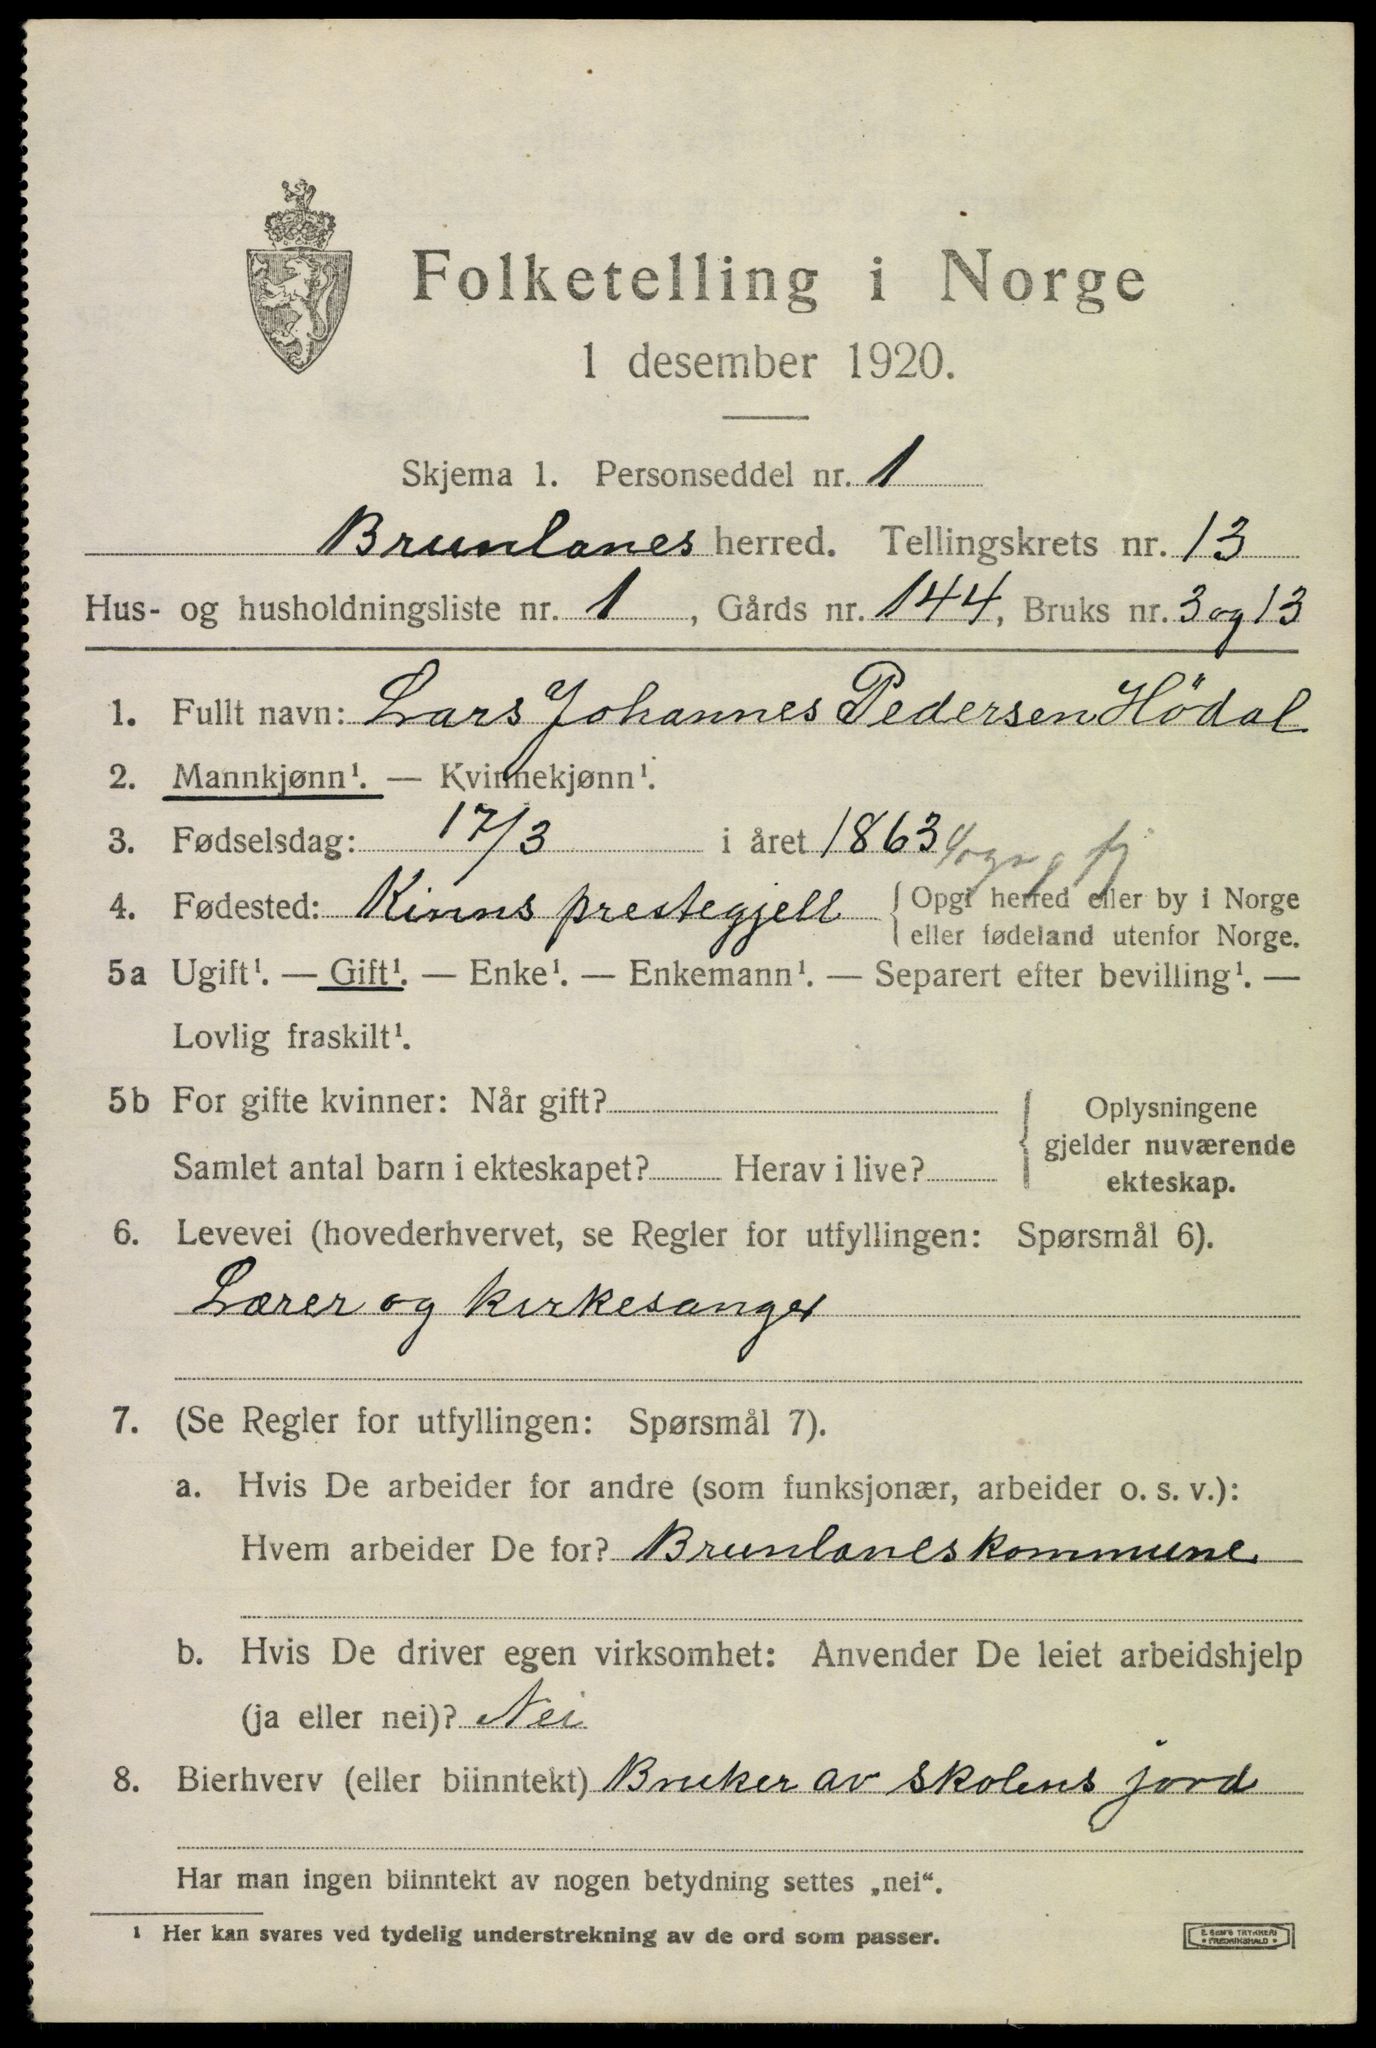 Folketelling i Norge
1 desember 1920.
Skjema 1. Personseddel nr. 1
Brunlanes herred. Tellingskrets nr. 13
Hus- og husholdningsliste nr. 1, Gårds nr. 144, Bruks nr. 3 og 13
1. Fullt navn: Lars Johannes Pedersen Hödal
2. Mannkjønn¹. — Kvinnekjønn¹.
3. Fødselsdag: 17/3 i året 1863
4. Fødested: Kinns prestegjell { Opgi herred eller by i Norge
eller fødeland utenfor Norge.
5a Ugift¹. — Gift¹. — Enke¹. — Enkemann¹. — Separert efter bevilling¹. —
Lovlig fraskilt¹.
5b For gifte kvinner: Når gift?
Samlet antal barn i ekteskapet? Herav i live?
Oplysningene
gjelder nuværende
ekteskap.
6. Levevei (hovederhvervet, se Regler for utfyllingen: Spørsmål 6).
Lærer og kirkesanger
7. (Se Regler for utfyllingen: Spørsmål 7).
a. Hvis De arbeider for andre (som funksjonær, arbeider o. s. v.):
Hvem arbeider De for? Brunlanes kommune
b. Hvis De driver egen virksomhet: Anvender De leiet arbeidshjelp
(ja eller nei)? Nei
8. Bierhverv (eller biinntekt) Bruker av skolens jord
Har man ingen biinntekt av nogen betydning settes „nei“.
¹ Her kan svares ved tydelig understrekning av de ord som passer.